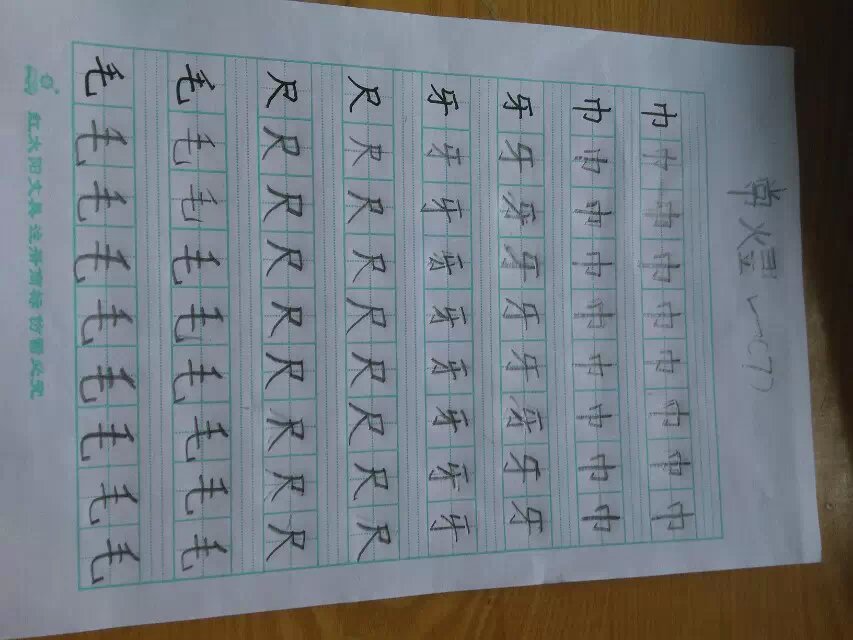 常煜 一(7)
巾巾巾巾巾巾巾巾巾
巾巾巾巾巾巾巾巾巾
牙牙牙牙牙牙牙牙牙
牙牙牙牙牙牙牙牙牙
尺尺尺尺尺尺尺尺尺
尺尺尺尺尺尺尺尺尺
毛毛毛毛毛毛毛毛毛
毛毛毛毛毛毛毛毛毛
红太阳文具 注册商标 仿冒必究